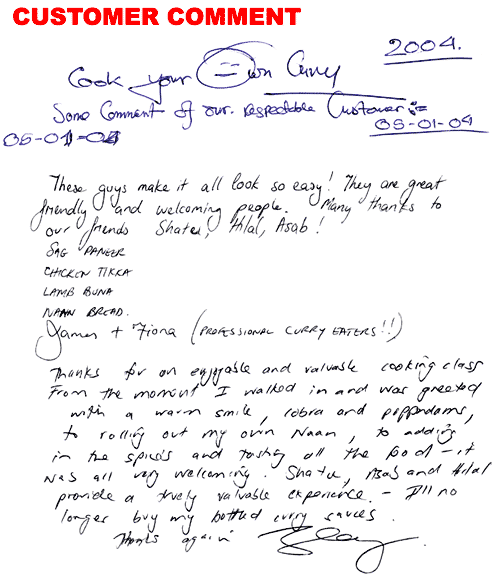 CUSTOMER COMMENT
2004.
Cook your Own Curry
Some Comment of our respectable Customer :=
05-01-04
05-01-04
These guys make it all look so easy! They are great
friendly and welcoming people. Many thanks to
our friends Shater, Hilal, Asab!
SAG PANEER
CHICKEN TIKKA
LAMB BUNA
NAAN BREAD.
James + Fiona (PROFESSIONAL CURRY EATERS!!)
Thanks for an enjoyable and valuable cooking class
From the moment I walked in and was greeted
with a warm smile, cobra and poppadams,
to rolling out my own Naan, to adding
in the spices and tasting all the food - it
was all very welcoming. Shater, Asab and Hilal
provide a truly valuable experience. - I'll no
longer buy my bottled curry sauces.
Thanks again